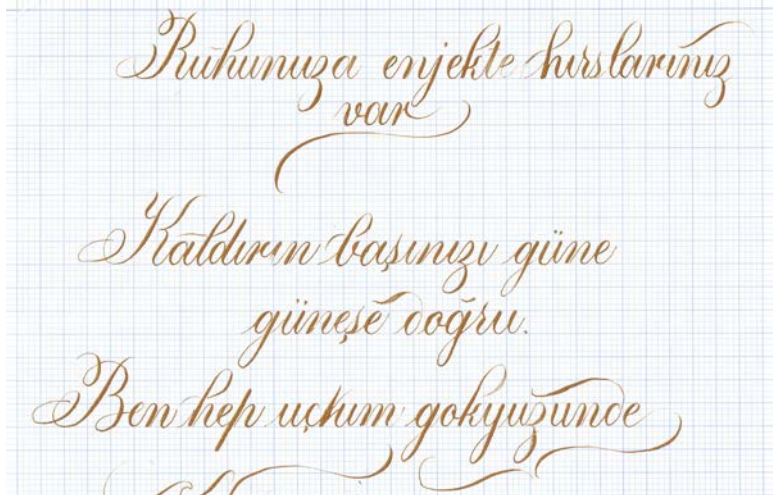 Ruhunuza enjekte hırslarınız
var
Kaldırın başınızı güne
güneşe doğru.
Ben hep uçtum gokyuzunde